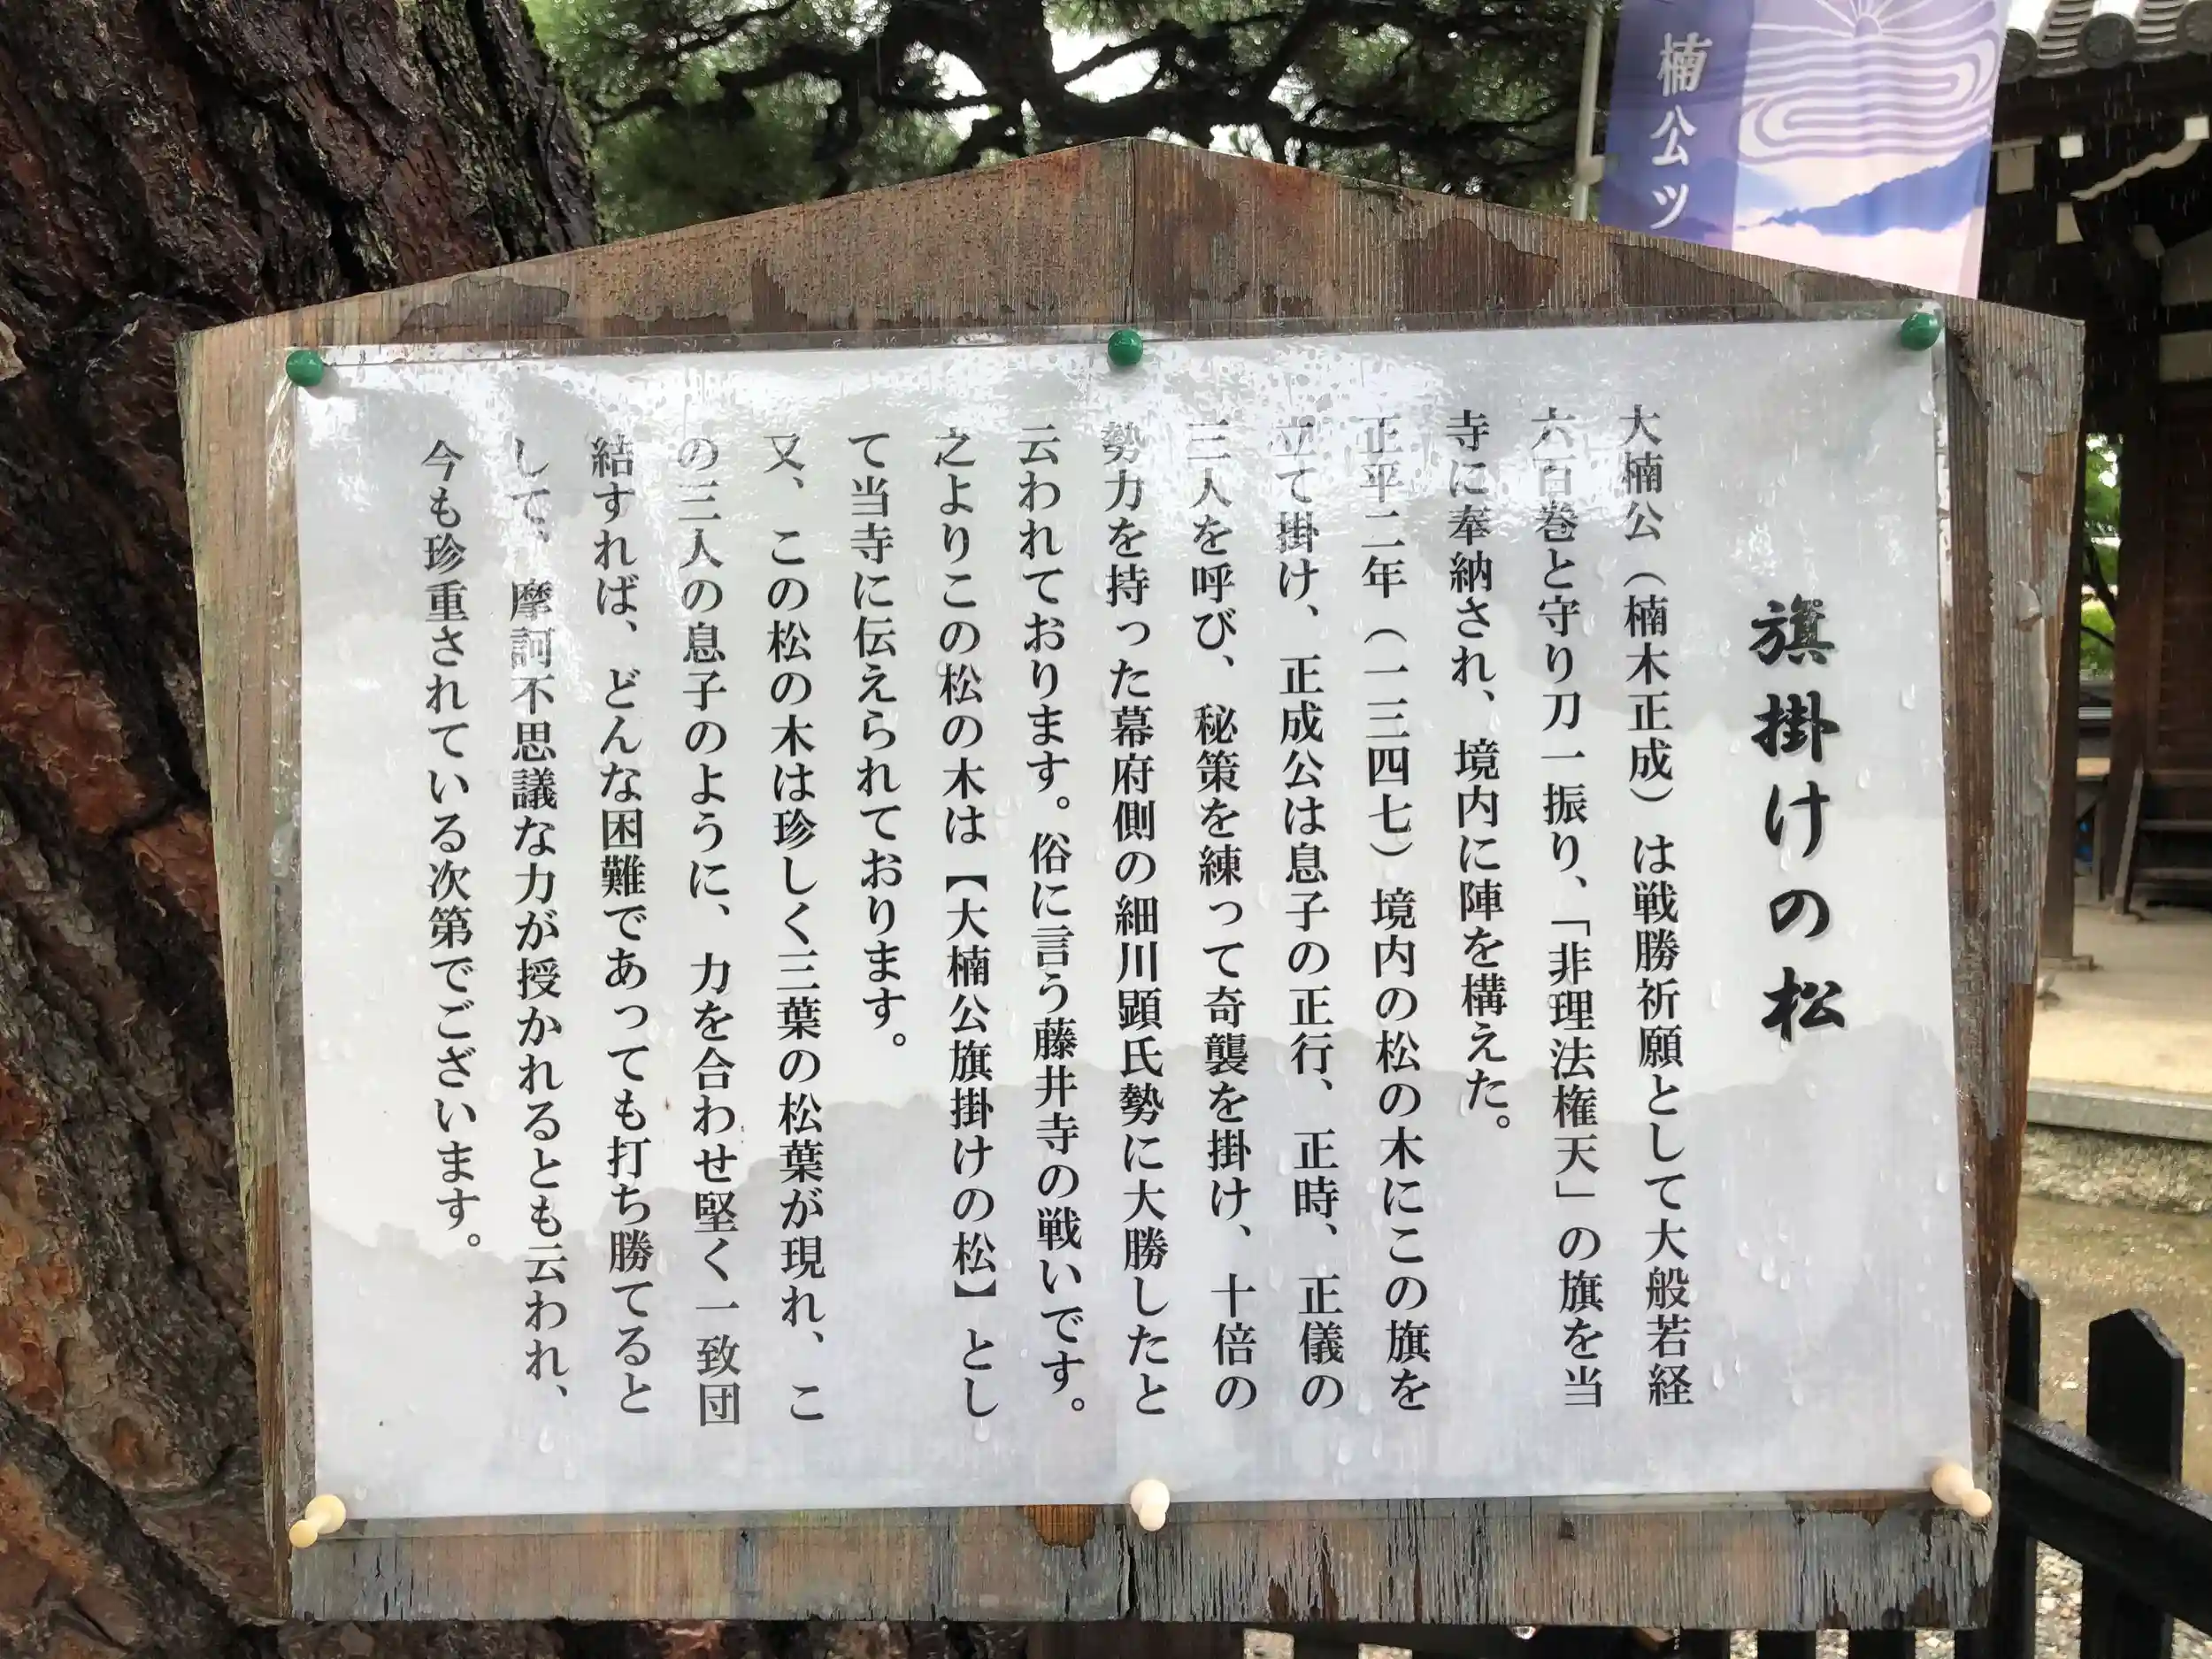 旗掛けの松
大楠公（楠木正成）は戦勝祈願として大般若経
六百巻と守り刀一振り、「非理法権天」の旗を当
寺に奉納され、境内に陣を構えた。
正平二年（一三四七）境内の松の木にこの旗を
立て掛け、正成公は息子の正行、正時、正儀の
三人を呼び、秘策を練って奇襲を掛け、十倍の
勢力を持った幕府側の細川顕氏勢に大勝したと
云われております。俗に言う藤井寺の戦いです。
之よりこの松の木は【大楠公旗掛けの松】とし
て当寺に伝えられております。
又、この松の木は珍しく三葉の松葉が現れ、こ
の三人の息子のように、力を合わせ堅く一致団
結すれば、どんな困難であっても打ち勝てると
して、摩訶不思議な力が授かれるとも云われ、
今も珍重されている次第でございます。
楠公ツ